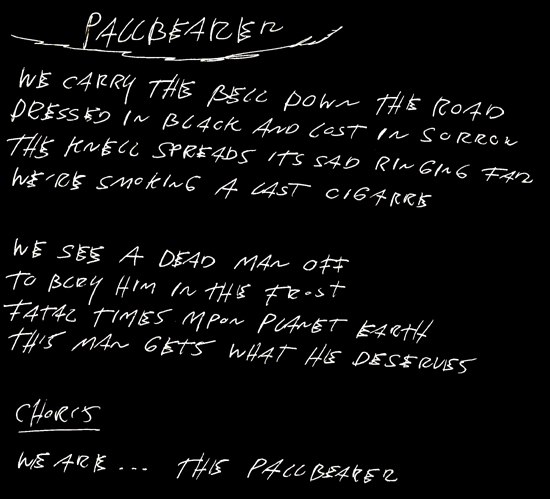 PALLBEARER
WE CARRY THE BELL DOWN THE ROAD
DRESSED IN BLACK AND LOST IN SORROW
THE KNELL SPREADS ITS SAD RINGING FAR
WE'RE SMOKING A LAST CIGARRE
WE SEE A DEAD MAN OFF
TO BURY HIM IN THE FROST
FATAL TIMES UPON PLANET EARTH
THIS MAN GETS WHAT HE DESERVES
CHORUS
WE ARE... THE PALLBEARER